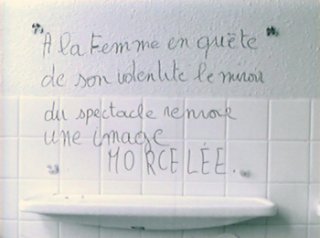 "A la Femme en quête"
de son identite le miroir
du spectacle renvoie
une image
MORCELÉE.